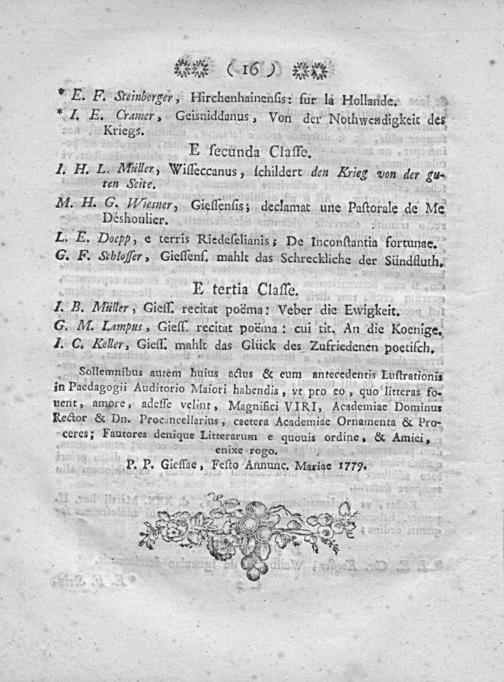 ( 16 )
* E. F. Steinberger, Hirchenhainensis: sur la Hollande.
* I. E. Cramer, Geisniddanus, Von der Nothwendigkeit des
Kriegs.
E secunda Classe.
I. H. L. Müller, Wisseccanus, schildert den Krieg von der gu-
ten Seite.
M. H. G. Wiesner, Giessensis; declamat une Pastorale de Me
Déshoulier.
L. E. Doepp, e terris Riedeselianis; De Inconstantia fortunae.
G. F. Schlosser, Giessens. mahlt das Schreckliche der Sündfluth.
E tertia Classe.
I. B. Müller, Giess. recitat poëma: Veber die Ewigkeit.
G. M. Lampus, Giess. recitat poëma: cui tit. An die Koenige.
I. C. Keller, Giess. mahlt das Glück des Zufriedenen poetisch.
Sollemnibus autem huius actus & eum antecedentis Lustrationis
in Paedagogii Auditorio Maiori habendis, vt pro eo, quo litteras fo-
uent, amore, adesse velint, Magnifici VIRI, Academiae Dominus
Rector & Dn. Procancellarius, caetera Academiae Ornamenta & Pro-
ceres; Fautores denique Litterarum e quouis ordine, & Amici,
enixe rogo.
P. P. Giessae, Festo Annunc. Mariae 1779.